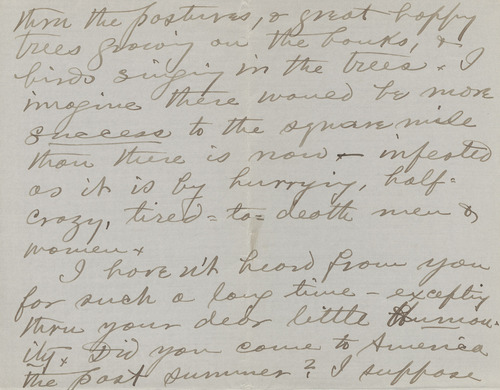 thru the pastures, & great happy
trees growing on the banks, &
birds singing in the trees. I
imagine there would be more
success to the square mile
than there is now — infested
as it is by hurrying, half-
crazy, tired-to-death men &
women.
I haven't heard from you
for such a long time — excepting
thru your dear little Human-
ity. Did you come to America
the past summer? I suppose